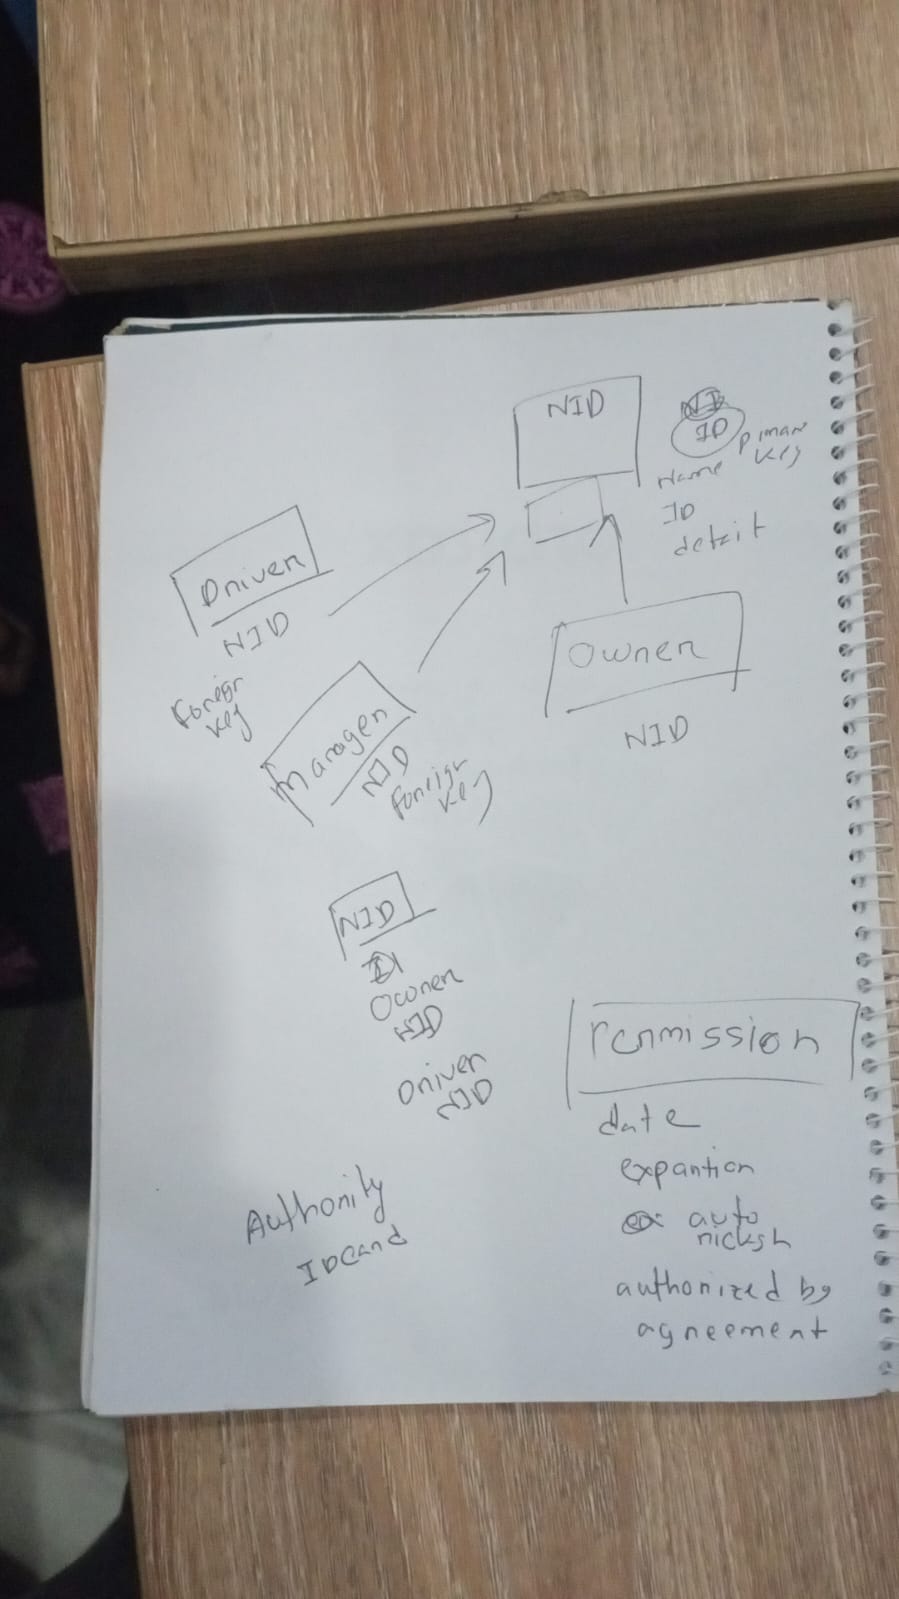 NID
ID
primary
key
Name
ID
detait
Driver
NID
Foreign
key
Manager
NID
Foreign
key
Owner
NID
NID
Owner
NID
Driver
NID
Authority
ID Card
Permission
date
expantion
auto
ricksh
authorized by
agreement